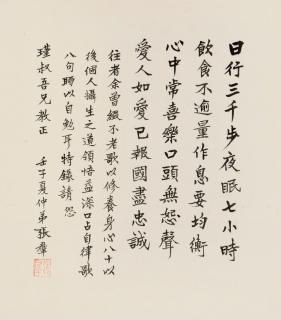 日行三千步夜眠七小時
飲食不逾量作息要均衡
心中常喜樂口頭無怨聲
愛人如愛己報國盡忠誠
往者余曾綴不老歌以修養身心八十以
後個人攝生之道領悟益深口占自律歌
八句聊以自勉耳特錄請 恕
瑾叔吾兄教正 壬子夏仲弟張羣